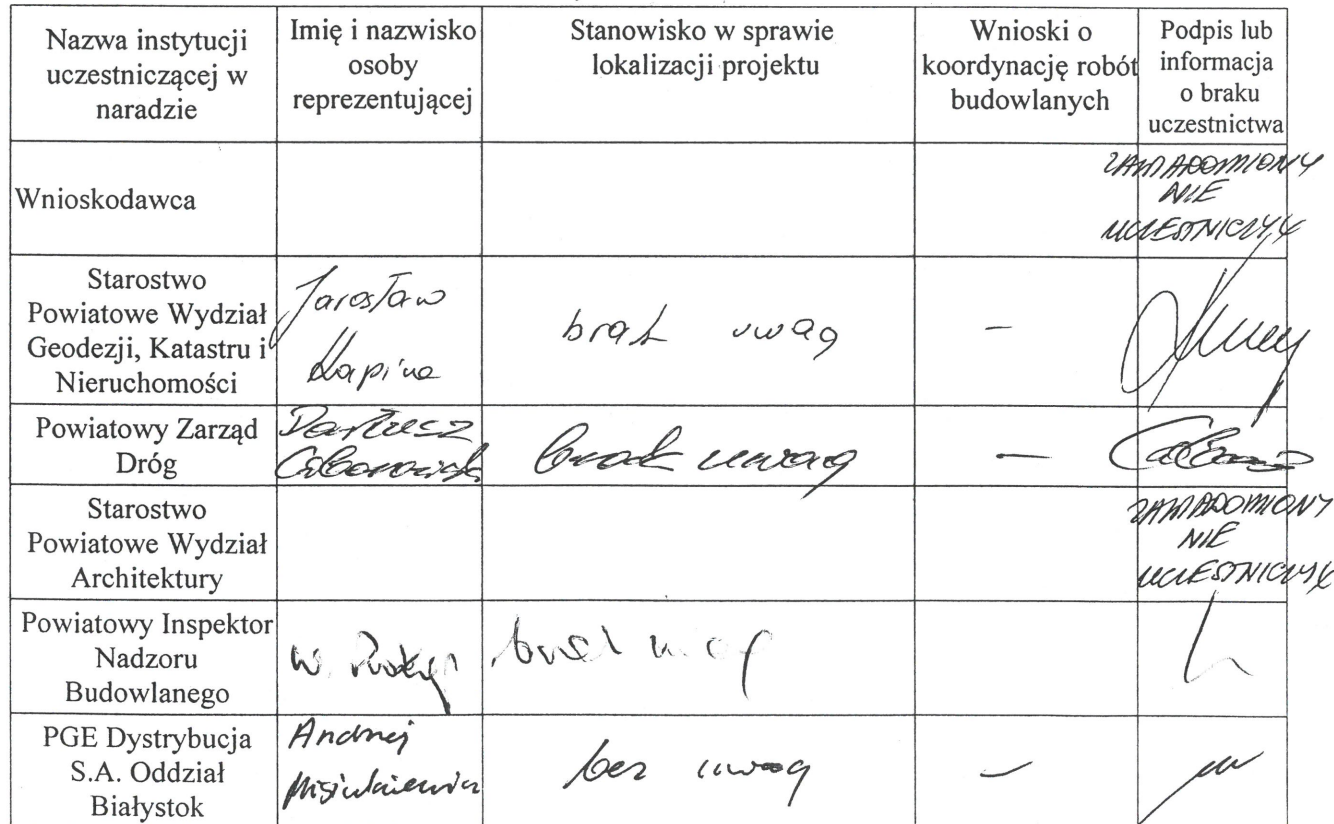 Nazwa instytucji
uczestniczącej w
naradzie
Imię i nazwisko
osoby
reprezentującej
Stanowisko w sprawie
lokalizacji projektu
Wnioski o
koordynację robót
budowlanych
Podpis lub
informacja
o braku
uczestnictwa
Wnioskodawca
ZAWIADOMIONY
NIE
UCZESTNICZYŁ
Starostwo
Powiatowe Wydział
Geodezji, Katastru i
Nieruchomości
Jarosław
Łapina
brak uwag
-
Powiatowy Zarząd
Dróg
Dariusz
brak uwag
-
Starostwo
Powiatowe Wydział
Architektury
ZAWIADOMIONY
NIE
UCZESTNICZYŁ
Powiatowy Inspektor
Nadzoru
Budowlanego
W.
brak uwag
PGE Dystrybucja
S.A. Oddział
Białystok
Andrzej
Misiukiewicz
bez uwag
-